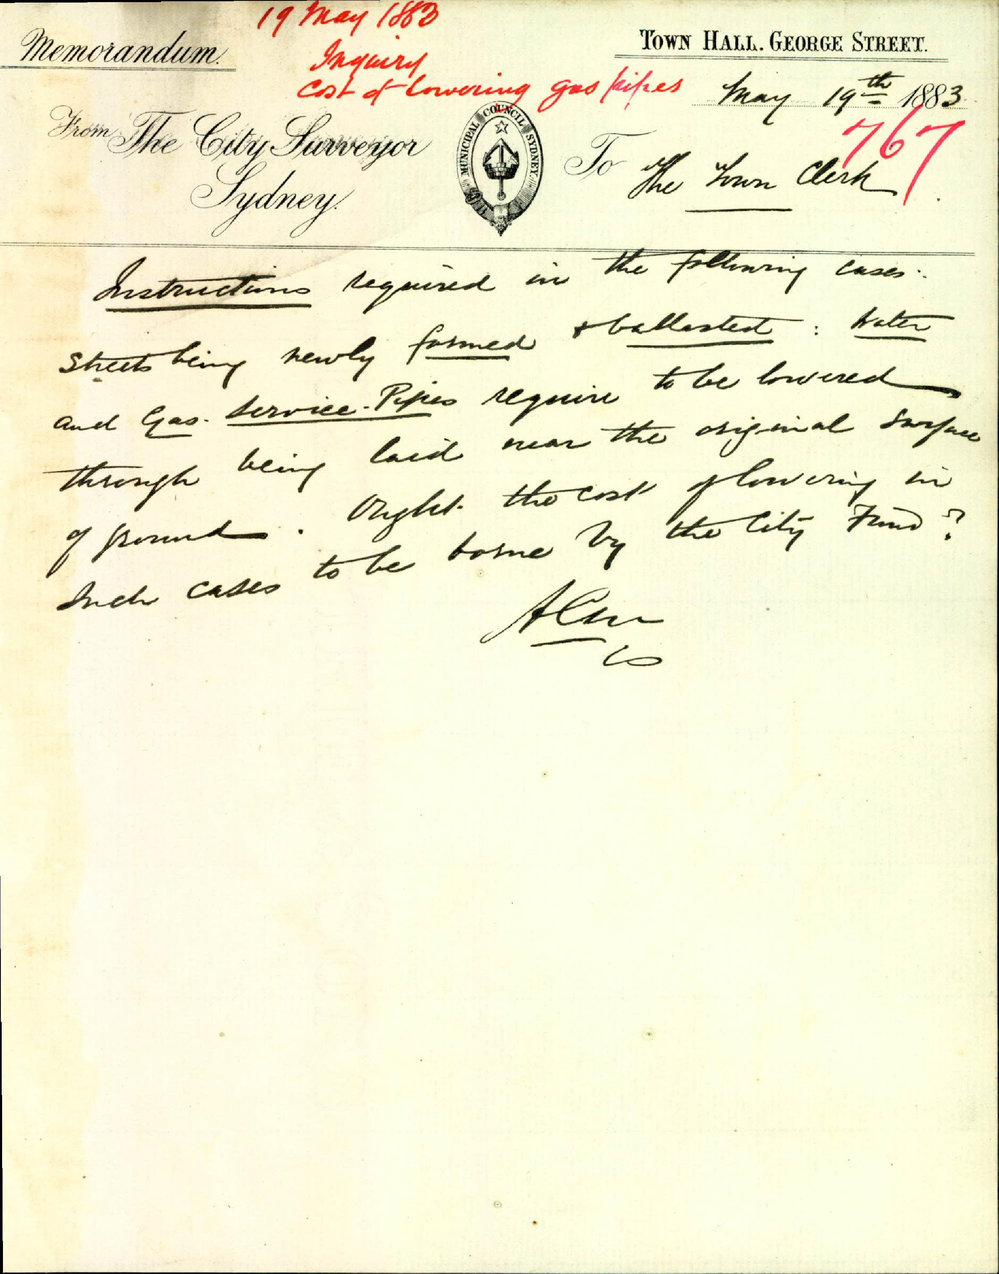 19 May 1883
Inquiry
Cost of lowering gas pipes
Memorandum.
TOWN HALL. GEORGE STREET.
May 19th 1883
767
From The City Surveyor
Sydney.
MUNICIPAL COUNCIL SYDNEY
To The Town Clerk
Instructions required in the following cases.
Streets being newly formed & ballasted : Water
and Gas. Service-Pipes require to be lowered
through being laid near the original surface
of ground. Ought the cost of lowering in
such cases to be borne by the City Fund?
CS